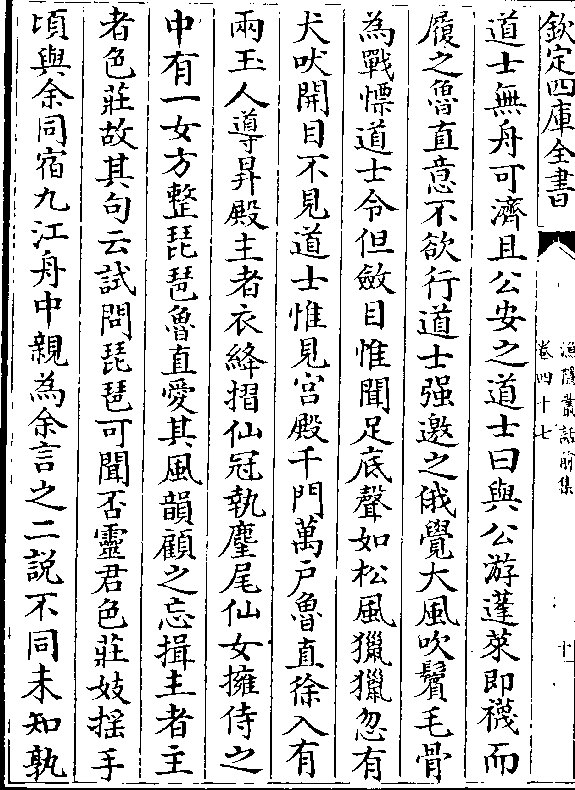 欽定四庫全書
漁隱叢話前集
卷四十七
十一
道士無舟可濟且公安之道士曰與公游蓬萊即襪而
履之魯直意不欲行道士强邀之俄覺大風吹鬢毛骨
為戰慄道士令但斂目惟聞足底聲如松風獵獵忽有
犬吠開目不見道士惟見宮殿千門萬户魯直徐入有
兩玉人導昇殿主者衣絳搢仙冠執麈尾仙女擁侍之
中有一女方整琵琶魯直愛其風韻顧之忘揖主者主
者色莊故其句云試問琵琶可聞否靈君色莊妓揺手
頃與余同宿九江舟中親為余言之二説不同未知孰